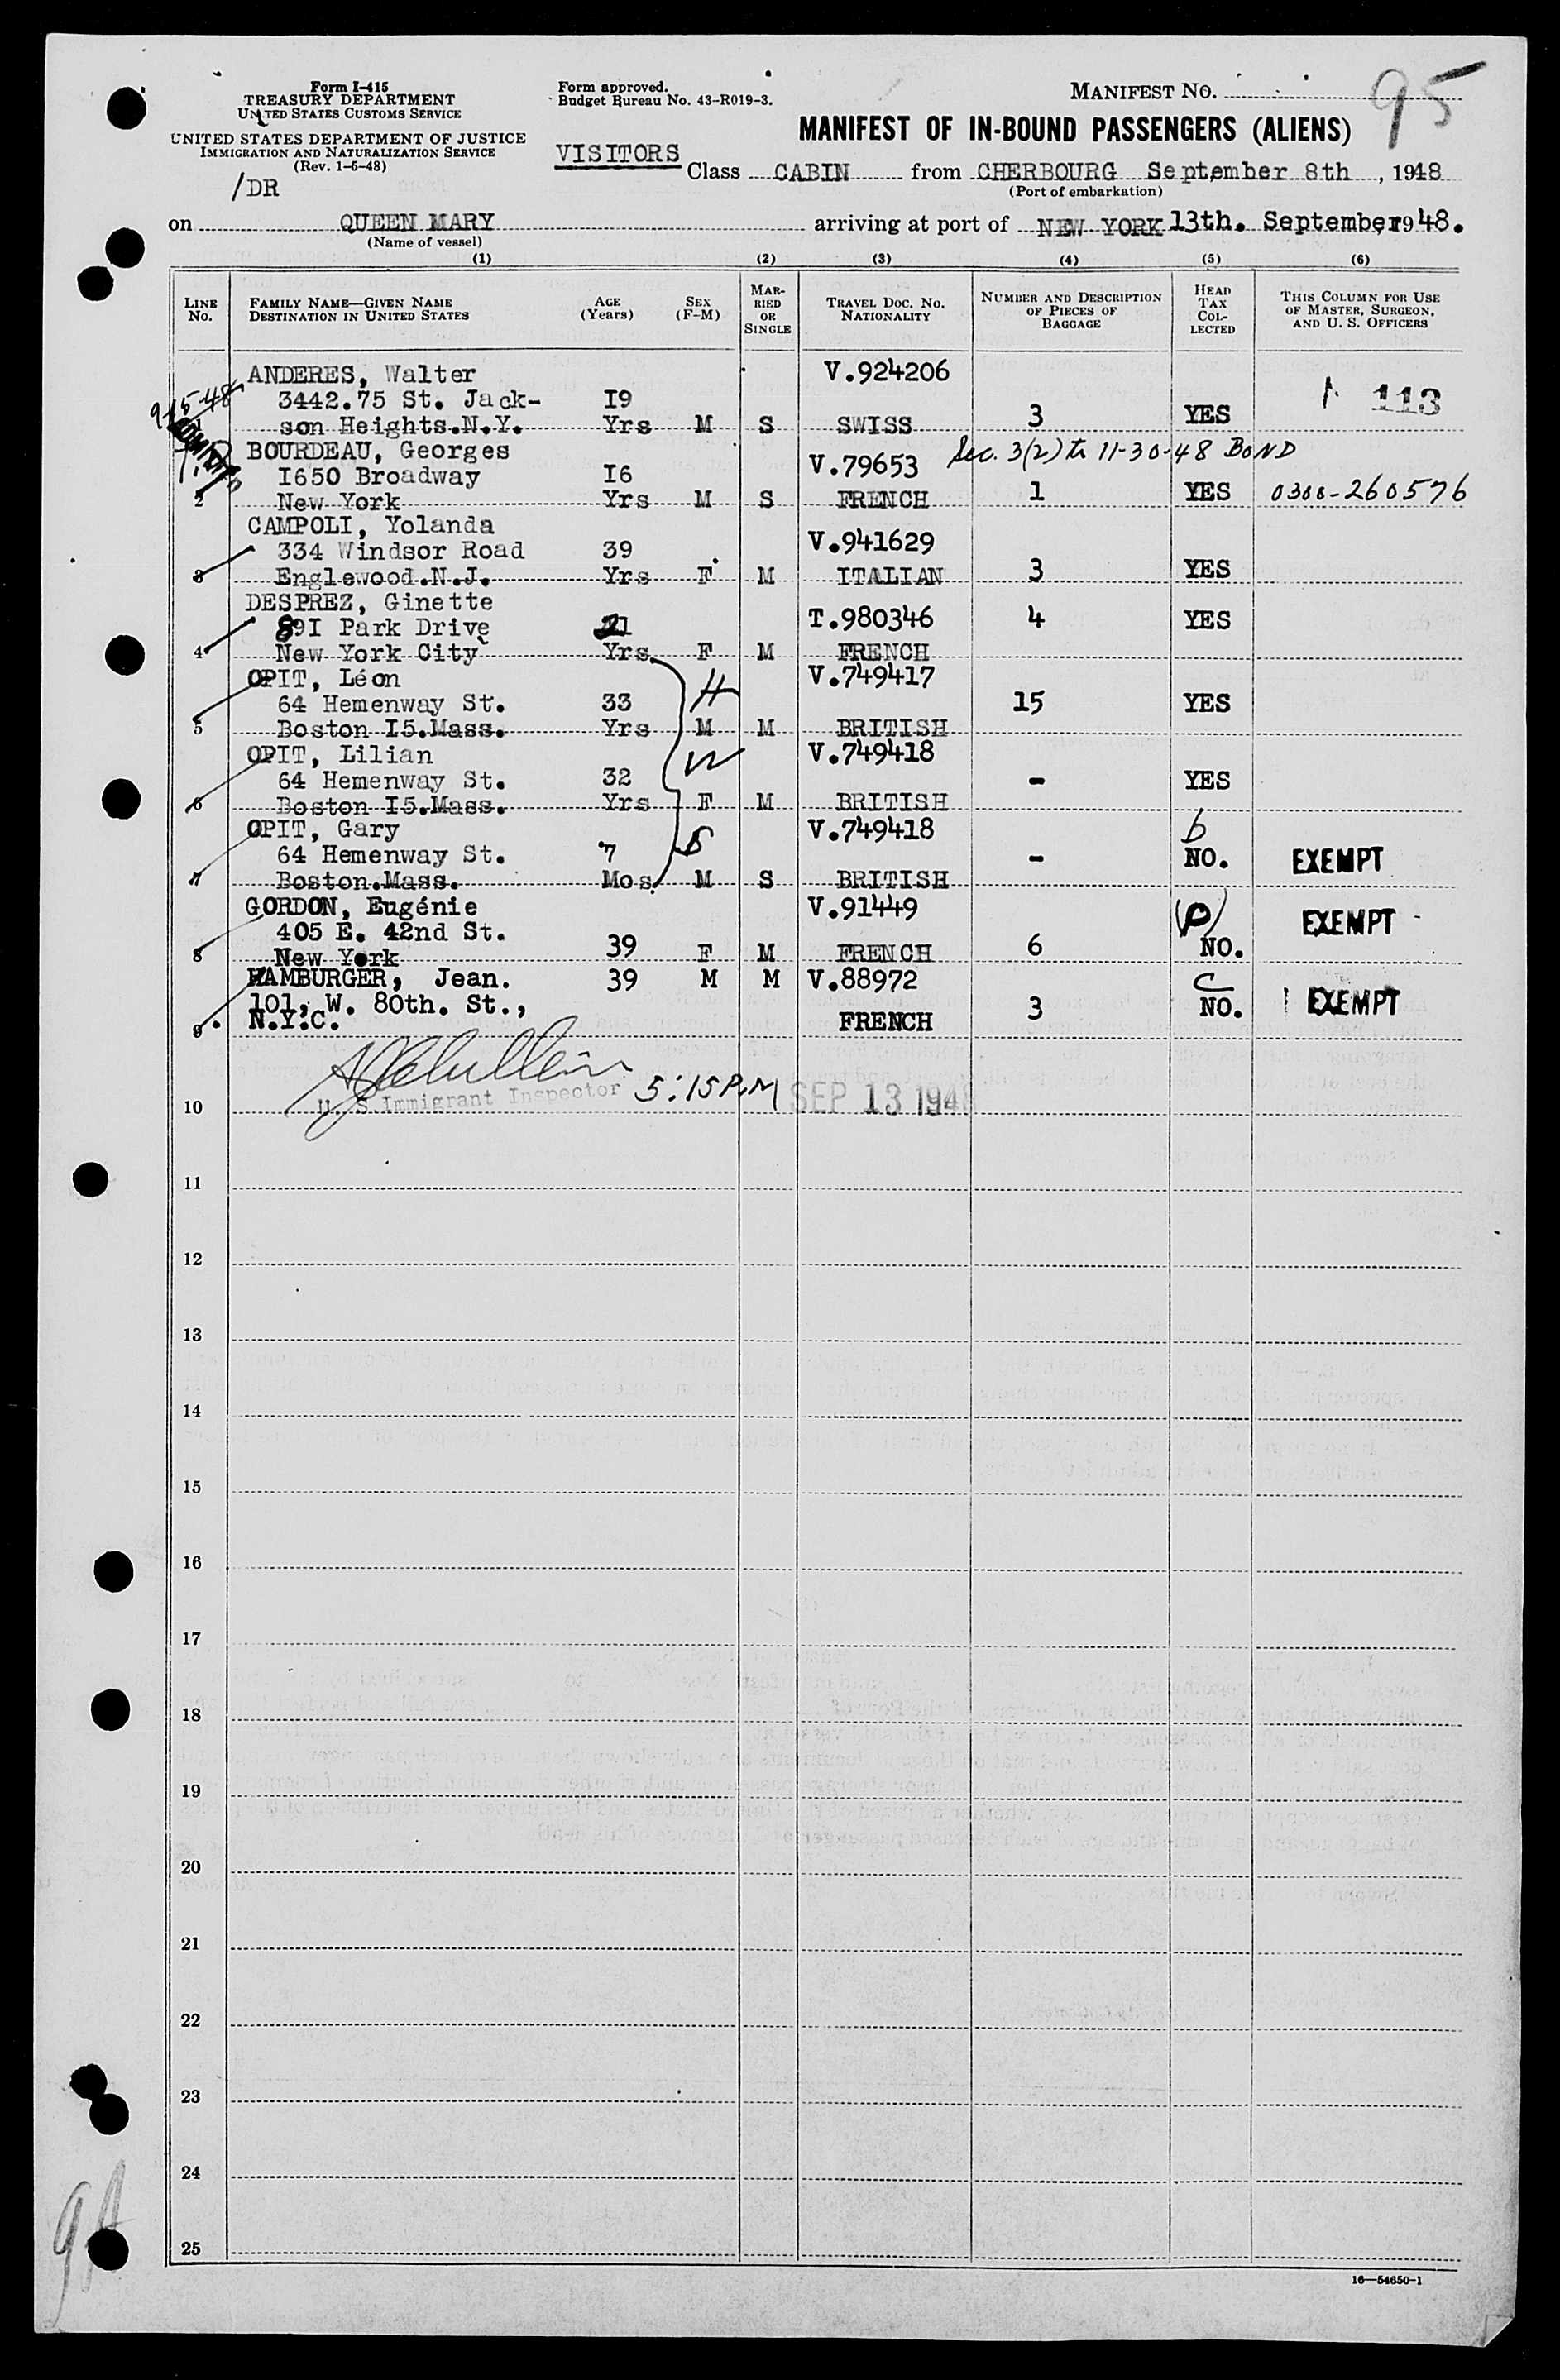 Form I-415
TREASURY DEPARTMENT
UNITED STATES CUSTOMS SERVICE
UNITED STATES DEPARTMENT OF JUSTICE
IMMIGRATION AND NATURALIZATION SERVICE
(Rev. 1-5-48)
/DR
Form approved.
Budget Bureau No. 43-R019-3.
MANIFEST NO. 95
MANIFEST OF IN-BOUND PASSENGERS (ALIENS)
VISITORS
Class CABIN from CHERBOURG September 8th, 1948
(Port of embarkation)
on QUEEN MARY arriving at port of NEW YORK 13th. September 1948.
(Name of vessel)
(1) (2) (3) (4) (5) (6)
LINE No.
FAMILY NAME—GIVEN NAME
DESTINATION IN UNITED STATES
AGE (Years)
SEX (F-M)
MARRIED OR SINGLE
TRAVEL DOC. NO. NATIONALITY
NUMBER AND DESCRIPTION OF PIECES OF BAGGAGE
HEAD TAX COLLECTED
THIS COLUMN FOR USE OF MASTER, SURGEON, AND U. S. OFFICERS
ANDERES, Walter V.924206
3442.75 St. Jack- I9 113
1 son Heights.N.Y. Yrs M S SWISS 3 YES
9-15-48
BOURDEAU, Georges V.79653 Sec. 3(2) to 11-30-48 BOND
I650 Broadway I6
2 New York Yrs M S FRENCH 1 YES 0300-260576
CAMPOLI, Yolanda V.941629
334 Windsor Road 39
3 Englewood.N.J. Yrs F M ITALIAN 3 YES
DESPREZ, Ginette T.980346 4 YES
89I Park Drive 21
4 New York City Yrs F M FRENCH
OPIT, Léon H V.749417
64 Hemenway St. 33 15 YES
5 Boston I5.Mass. Yrs M M BRITISH
OPIT, Lilian W V.749418
64 Hemenway St. 32 - YES
6 Boston I5.Mass. Yrs F M BRITISH
OPIT, Gary S V.749418 b
64 Hemenway St. 7 - NO. EXEMPT
7 Boston.Mass. Mos. M S BRITISH
GORDON, Eugénie V.91449 (P) EXEMPT
405 E. 42nd St.
8 New York 39 F M FRENCH 6 NO.
HAMBURGER, Jean. 39 M M V.88972 C
101, W. 80th. St., 3 NO. EXEMPT
9 N.Y.C. FRENCH
U. S. Immigrant Inspector 5:15 P.M SEP 13 194
10
11
12
13
14
15
16
17
18
19
20
21
22
23
24
25
16—54650-1